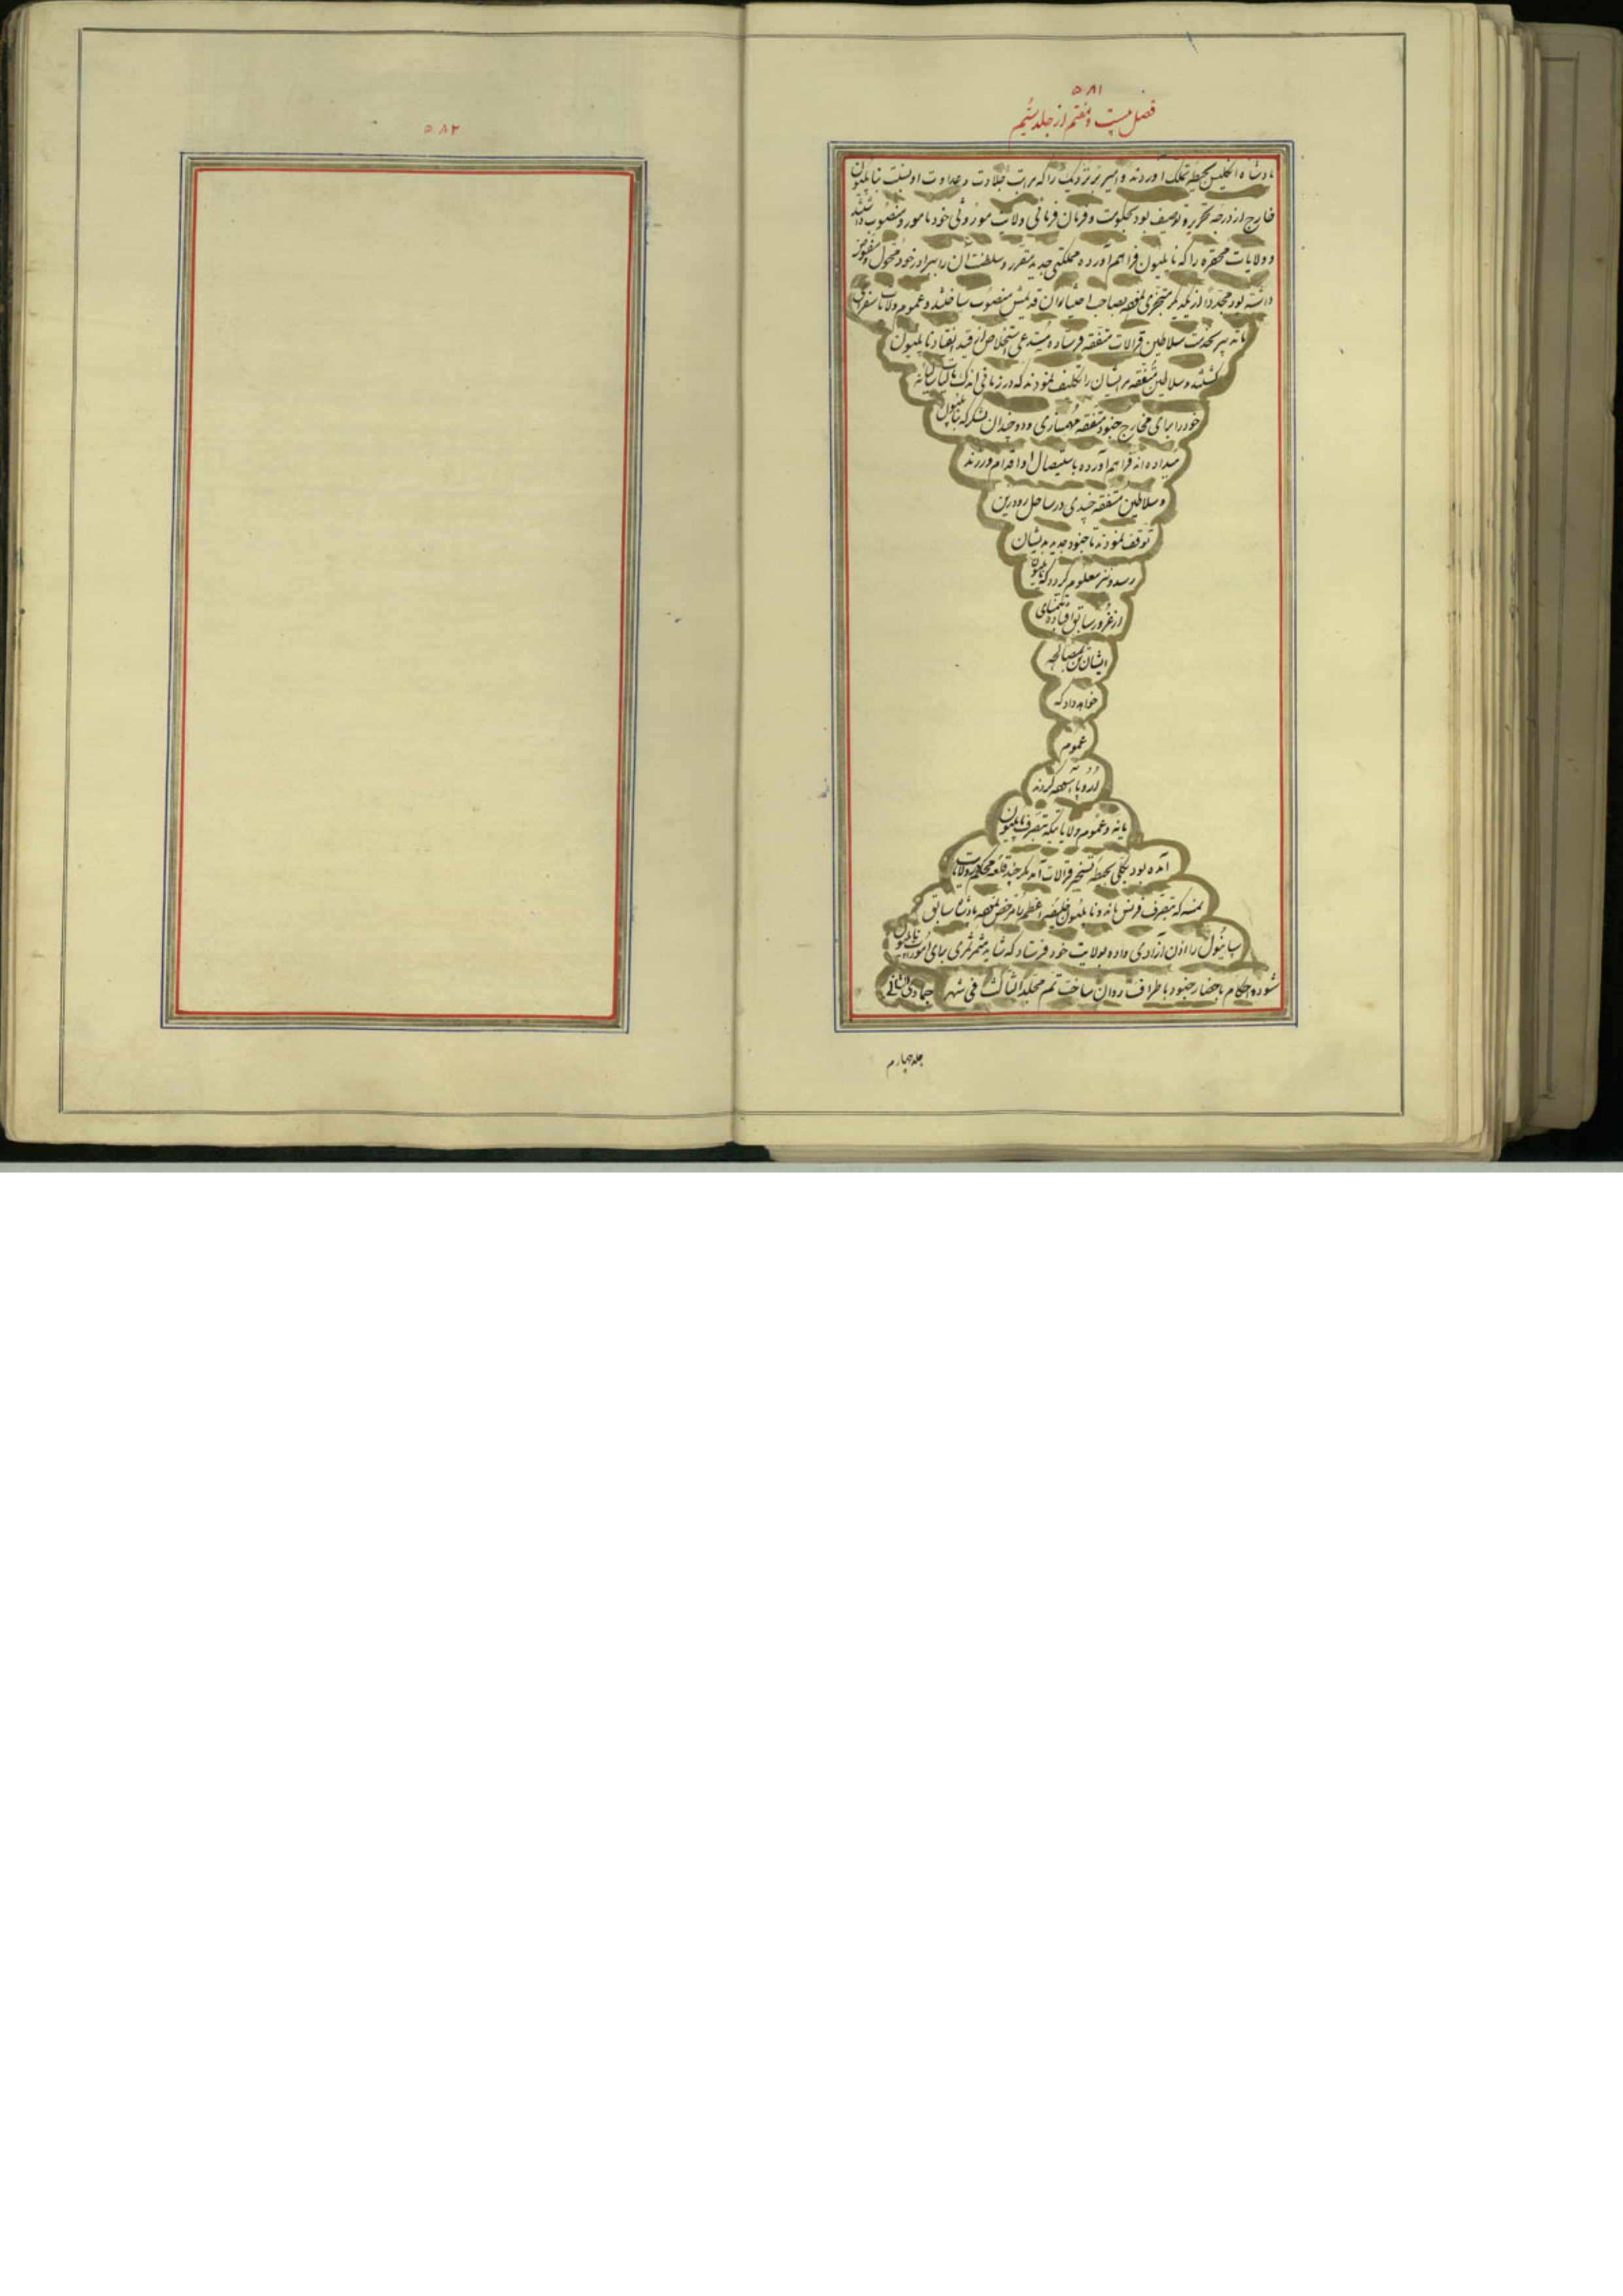 ۵۸۱
فصل بیست و هفتم از جلد سیم
پادشاه انگلیس بحیطه تملک آوردند و امیر را که مراتب جلادت و عداوت او نسبت بناپلیون
خارج از درجه تحریر و توصیف بود بحکومت و فرمان فرمائی ولایت موروثی خود مامور و منصوب داشتند
و ولایات محقره را که ناپلیون فراهم آورده مملکتی جدید مقرر و سلطنت آن را ببرادر خود محول و مفوض
داشته بود مجددا از یکدیگر متجزی نموده بصاحب اختیاران قدیمش منصوب ساختند و عموم ولایات
بخدمت سلاطین قرالات متفقه فرستاده مستدعی استخلاص از قید انقیاد ناپلیون
گشتند و سلاطین متفقه مر ایشان را تکلیف نمودند که در زمانی اندک
خود را برای مخارج جنود متفقه مهمسازی و دو چندان لشکر که بناپلیون
میداده اند فراهم آورده باستیصال او اقدام ورزند
و سلاطین متفقه چندی در ساحل رود رین
توقف نمودند تا جنود جدید بدیشان
رسد و نیز معلوم گردد که ناپلیون
از غرور سابق افتاده
ایشان تن بمصالحه
خواهد داد که
عموم
اروپا آسوده گردند
یا نه و عموم ولایاتیکه بتصرف ناپلیون
آمده بود بکلی بحیطه تسخیر قرالات آمد مگر چند قلعه محکم در ولایات
نمسه که بتصرف فرنس مانده و ناپلیون خلیفه اعظم را مرخص نموده پادشاه سابق
سپانیول را اذن آزادی داده بولایت خود فرستاد که شاید مثمر ثمری برای امورات ناپلیون
شود و احکام باحضار جنود باطراف روان ساخت تم مجلد الثالث فی شهر جمادی الثانی
جلد چهارم
۵۸۲